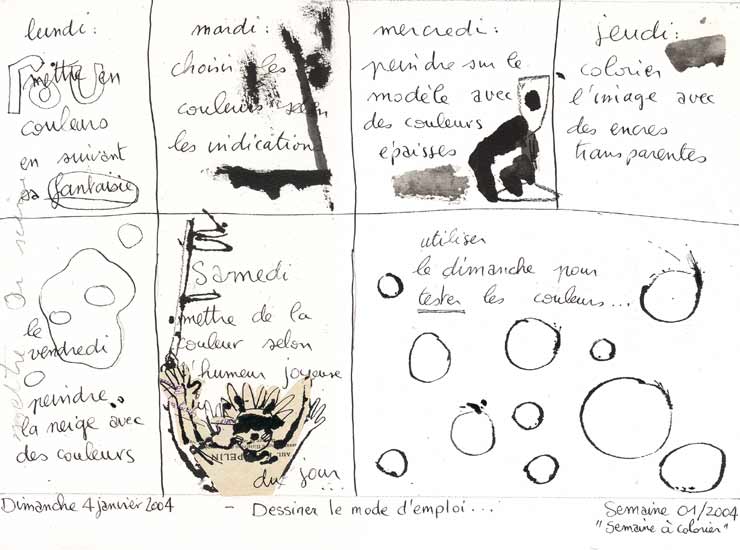 lundi :
mettre en
couleurs
en suivant
sa fantaisie
mardi :
choisir les
couleurs selon
les indications
mercredi :
peindre sur le
modèle avec
des couleurs
épaisses
jeudi :
colorier
l'image avec
des encres
transparentes
le
vendredi
peindre
la neige avec
des couleurs
Samedi
mettre de la
couleur selon
l'humeur joyeuse
du jour ...
utiliser
le dimanche pour
tester les couleurs ...
Dimanche 4 janvier 2004
- Dessiner le mode d'emploi ...
Semaine 01/2004
"Semaine à colorier"